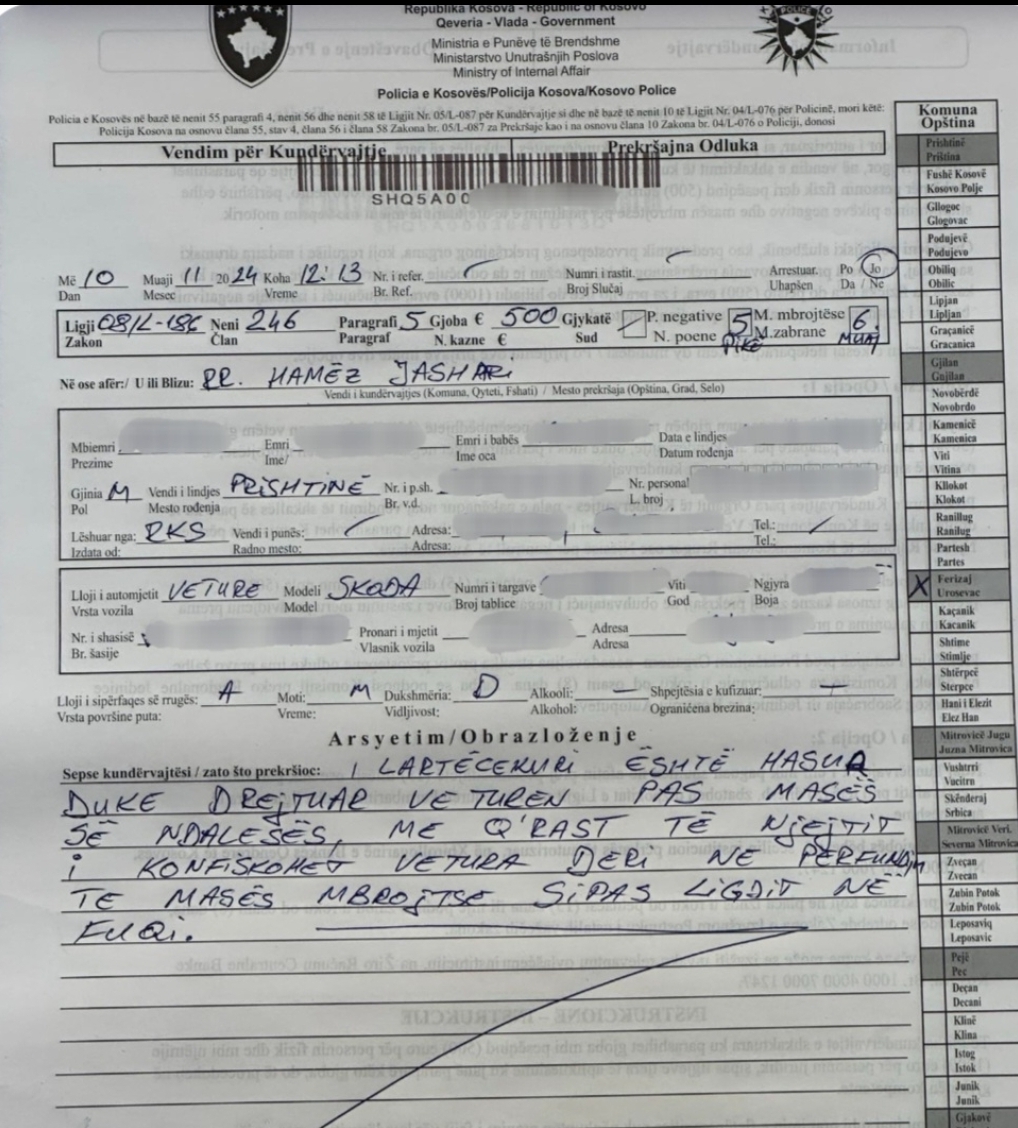 Republika Kosova - Republic of Kosovo
Qeveria - Vlada - Government
Ministria e Punëve të Brendshme
Ministarstvo Unutrašnjih Poslova
Ministry of Internal Affair
POLICE
Policia e Kosovës/Policija Kosova/Kosovo Police
Policia e Kosovës në bazë të nenit 55 paragrafi 4, nenit 56 dhe nenit 58 të Ligjit Nr. 05/L-087 për Kundërvajtje si dhe në bazë të nenit 10 të Ligjit Nr. 04/L-076 për Policinë, mori këtë:
Policija Kosova na osnovu člana 55, stav 4, člana 56 i člana 58 Zakona br. 05/L-087 za Prekršaje kao i na osnovu člana 10 Zakona br. 04/L-076 o Policiji, donosi
Vendim për Kundërvajtje Prekršajna Odluka
SHQ5A00
Më 10 Muaji 11 2024 Koha 12:13 Nr. i refer. Numri i rastit. Arrestuar. Po / Jo
Dan Mesec Vreme Br. Ref. Broj Slučaj Uhapšen Da / Ne
Ligji 08/L-186 Neni 246 Paragrafi 5 Gjoba € 500 Gjykatë P. negative 5 M. mbrojtëse 6.
Zakon Član Paragraf N. kazne € Sud N. poene PIKË M.zabrane MUAJ
Në ose afër:/ U ili Blizu: RR. HAMËZ JASHARI
Vendi i kundërvajtjes (Komuna, Qyteti, Fshati) / Mesto prekršaja (Opština, Grad, Selo)
Mbiemri Emri Emri i babës Data e lindjes
Prezime Ime/ Ime oca Datum rođenja
Gjinia M Vendi i lindjes PRISHTINË Nr. i p.sh. Nr. personal
Pol Mesto rođenja Br. v.d. L. broj
Lëshuar nga: RKS Vendi i punës: Adresa: Tel.:
Izdata od: Radno mesto: Adresa: Tel.:
Lloji i automjetit VETURË Modeli SKODA Numri i targave Viti Ngjyra
Vrsta vozila Model Broj tablice God Boja
Nr. i shasisë Pronari i mjetit Adresa
Br. šasije Vlasnik vozila Adresa
Lloji i sipërfaqes së rrugës: A Moti: M Dukshmëria: D Alkooli: – Shpejtësia e kufizuar:
Vrsta površine puta: Vreme: Vidljivost: Alkohol: Ograničena brezina:
Arsyetim/Obrazloženje
Sepse kundërvajtësi / zato što prekršioc: I LARTËCEKURI ËSHTË HASUR
DUKE DREJTUAR VETUREN PAS MASËS
SË NDALESËS, ME Q'RAST TË NJEJTIT
I KONFISKOHET VETURA DERI NË PËRFUNDIM
TE MASËS MBROJTSE SIPAS LIGJIT NË
FUQI.
Komuna
Opština
Prishtinë
Priština
Fushë Kosovë
Kosovo Polje
Gllogoc
Glogovac
Podujevë
Podujevo
Obiliq
Obilic
Lipjan
Lipljan
Graçanicë
Gracanica
Gjilan
Gnjilan
Novobërdë
Novobrdo
Kamenicë
Kamenica
Viti
Vitina
Kllokot
Klokot
Ranillug
Ranilug
Partesh
Partes
X Ferizaj
Urosevac
Kaçanik
Kacanik
Shtime
Stimlje
Shtërpcë
Sterpce
Hani i Elezit
Elez Han
Mitrovicë Jugu
Juzna Mitrovica
Vushtrri
Vucitrn
Skënderaj
Srbica
Mitrovicë Veri.
Severna Mitrovica
Zveçan
Zvecan
Zubin Potok
Zubin Potok
Leposaviq
Leposavic
Pejë
Pec
Deçan
Decani
Klinë
Klina
Istog
Istok
Junik
Junik
Gjakovë